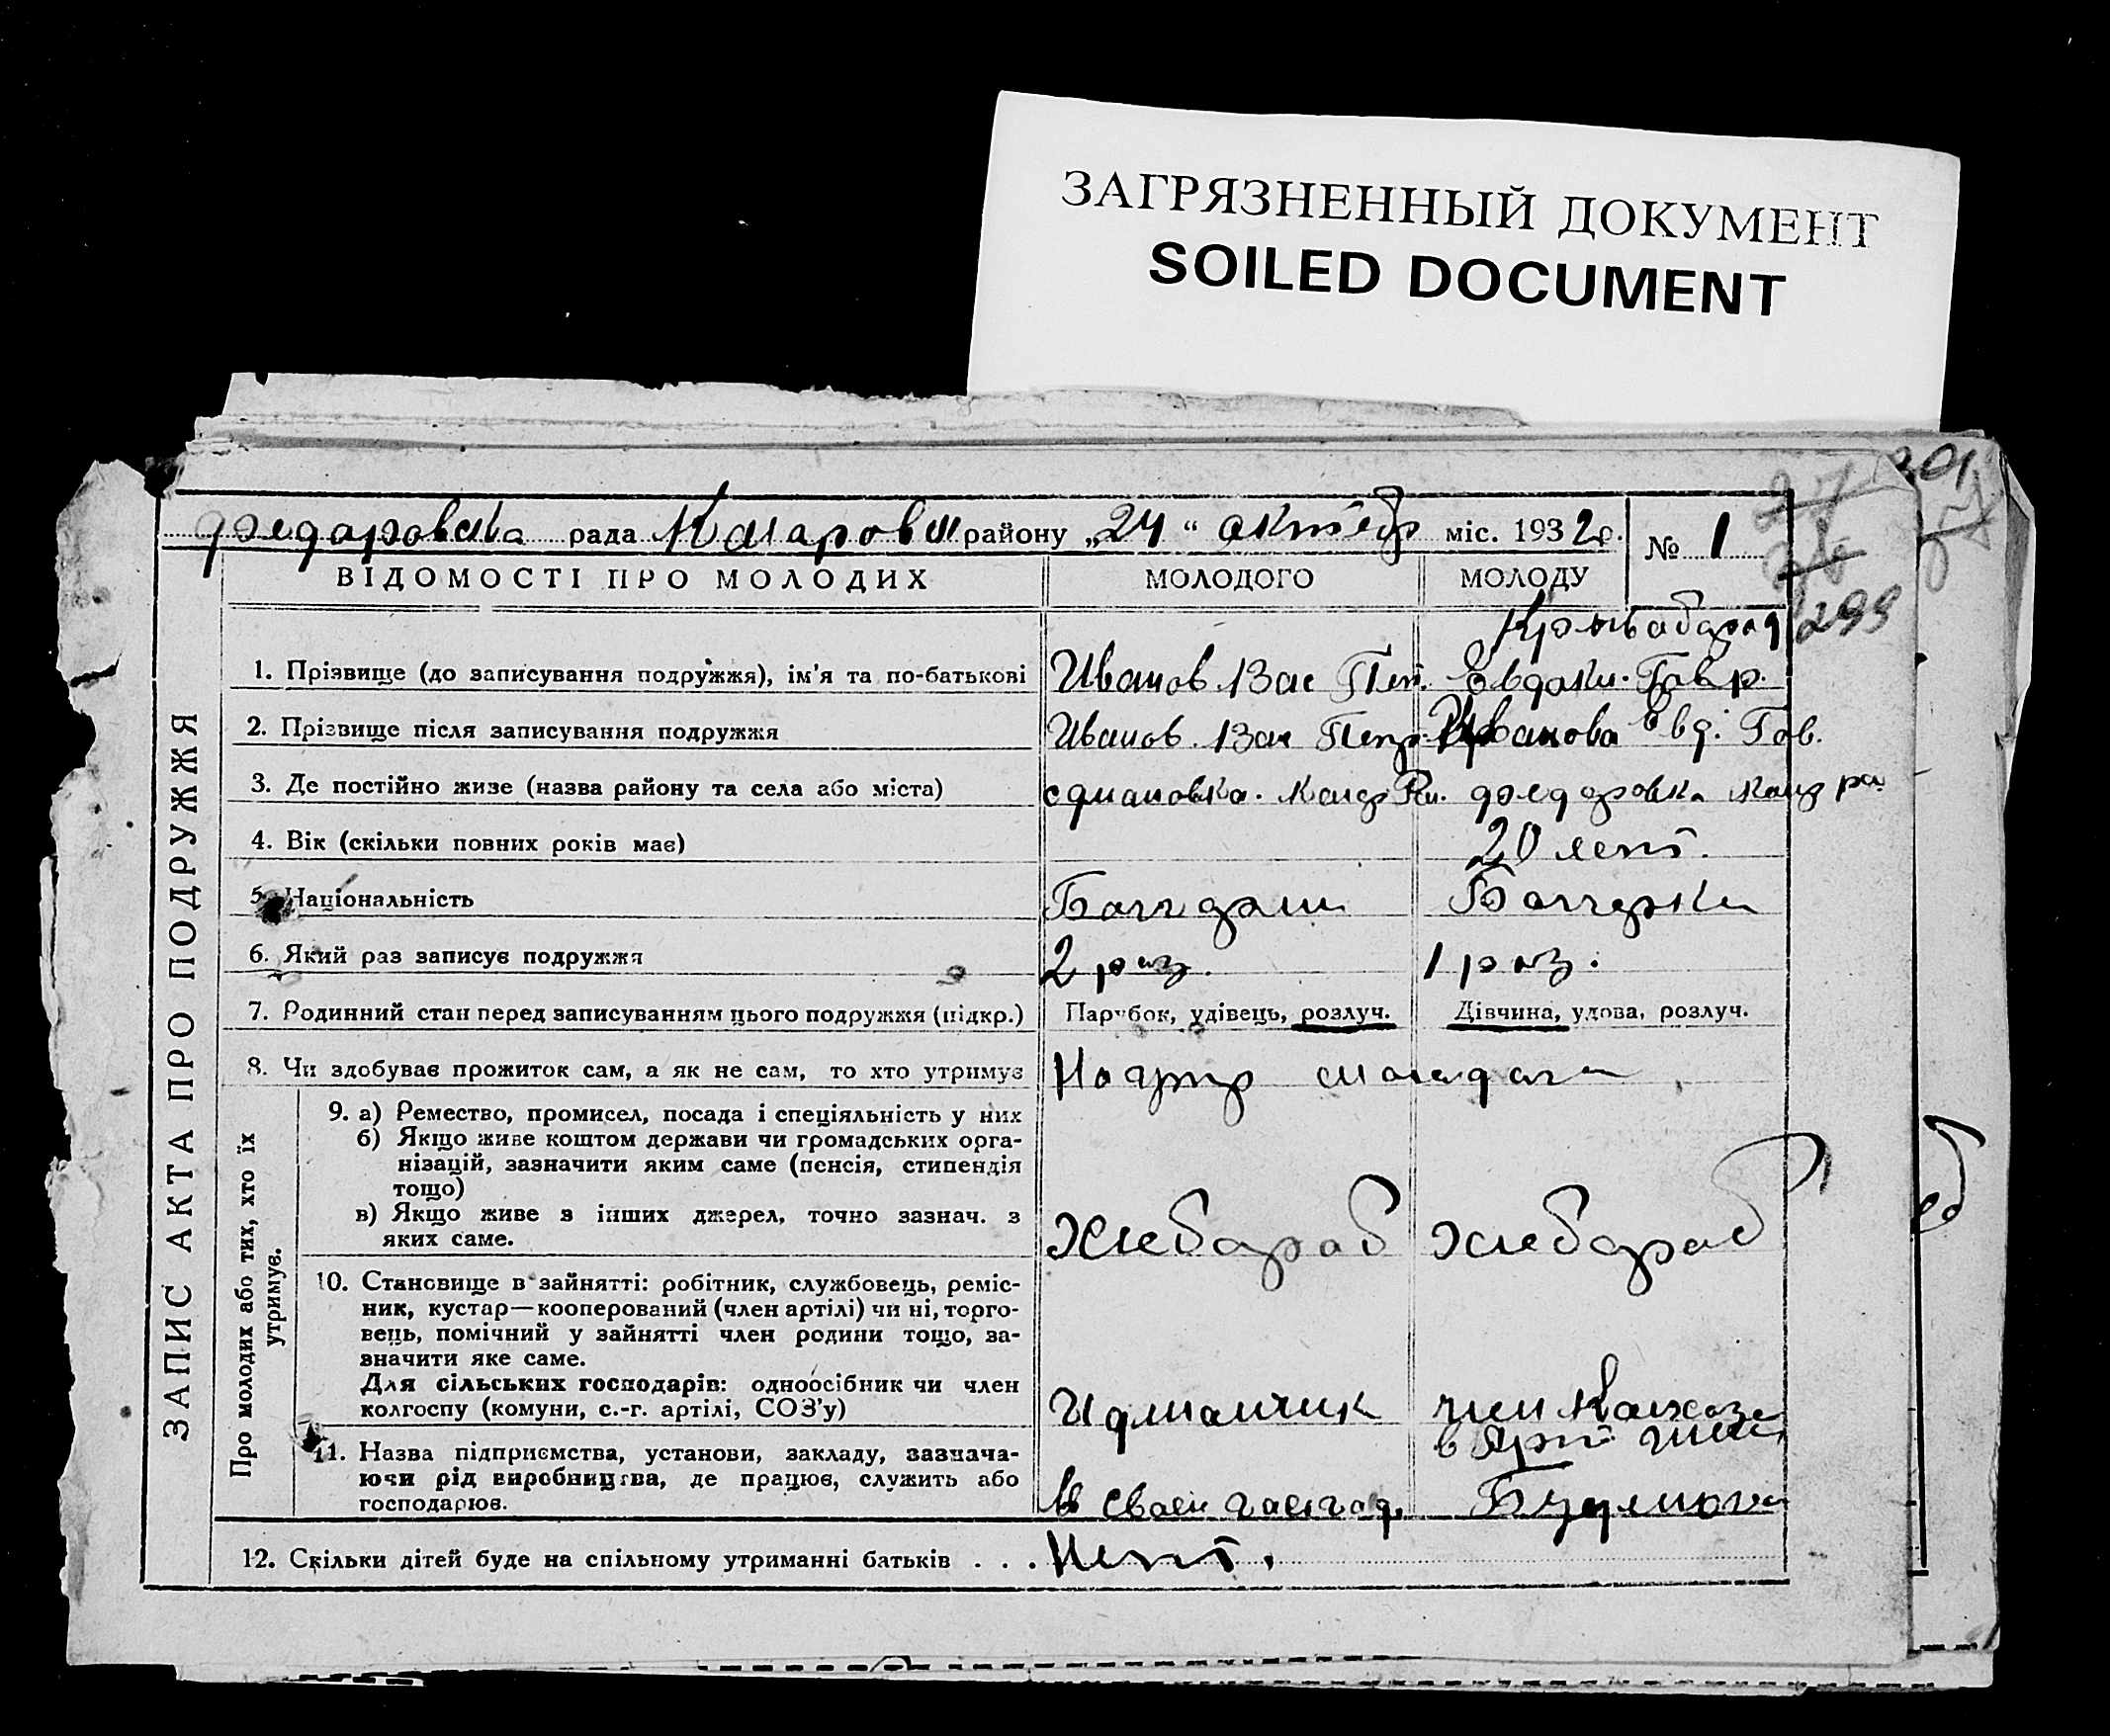 ЗАГРЯЗНЕННЫЙ ДОКУМЕНТ
SOILED DOCUMENT
301
299
рада району „24“ октебр міс. 1932 г. № 1
ЗАПИС АКТА ПРО ПОДРУЖЖЯ
ВІДОМОСТІ ПРО МОЛОДИХ МОЛОДОГО МОЛОДУ
1. Прізвище (до записування подружжя), ім'я та по-батькові Иванов Вас Пет. Евдоки. Гавр.
2. Прізвище після записування подружжя Иванов Вас Петр. Иванова Евд. Гав.
3. Де постійно живе (назва району та села або міста) федаровка
4. Вік (скільки повних років має) 20 лет.
5. Національність Балгарин Балгарка
6. Який раз записує подружжя 2 раз. 1 раз.
7. Родинний стан перед записуванням цього подружжя (підкр.) Парубок, удівець, розлуч. Дівчина, удова, розлуч.
8. Чи здобуває прожиток сам, а як не сам, то хто утримує
Про молодих або тих, хто їх утримує.
9. а) Ремество, промисел, посада і спеціяльність у них
б) Якщо живе коштом держави чи громадських орга-
нізацій, зазначити яким саме (пенсія, стипендія
тощо)
в) Якщо живе з інших джерел, точно зазнач. з
яких саме. хлебароб хлебароб
10. Становище в зайнятті: робітник, службовець, реміс-
ник, кустар—кооперований (член артілі) чи ні, торго-
вець, помічний у зайнятті член родини тощо, за-
значити яке саме.
Для сільських господарів: одноосібник чи член
колгоспу (комуни, с.-г. артілі, СОЗ'у) член Калхоза
11. Назва підприємства, установи, закладу, зазнача-
ючи рід виробництва, де працює, служить або
господарює. В своем
12. Скільки дітей буде на спільному утриманні батьків . . . Нет.